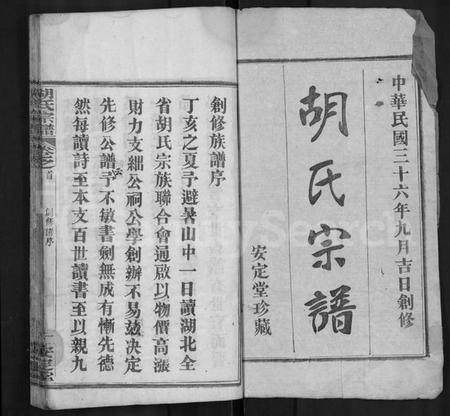 中華民國三十六年九月吉日創修
胡氏宗譜
安定堂珍藏
創修族譜序
丁亥之夏予避暑山中一日讀湖北全
省胡氏宗族聯合會通啟以物價高漲
財力支絀公祠公學創辦不易茲決定
先修公譜予不敏書劍無成有慚先德
然每讀詩至本文百世讀書至以親九
胡氏宗譜
卷之首
創修譜序